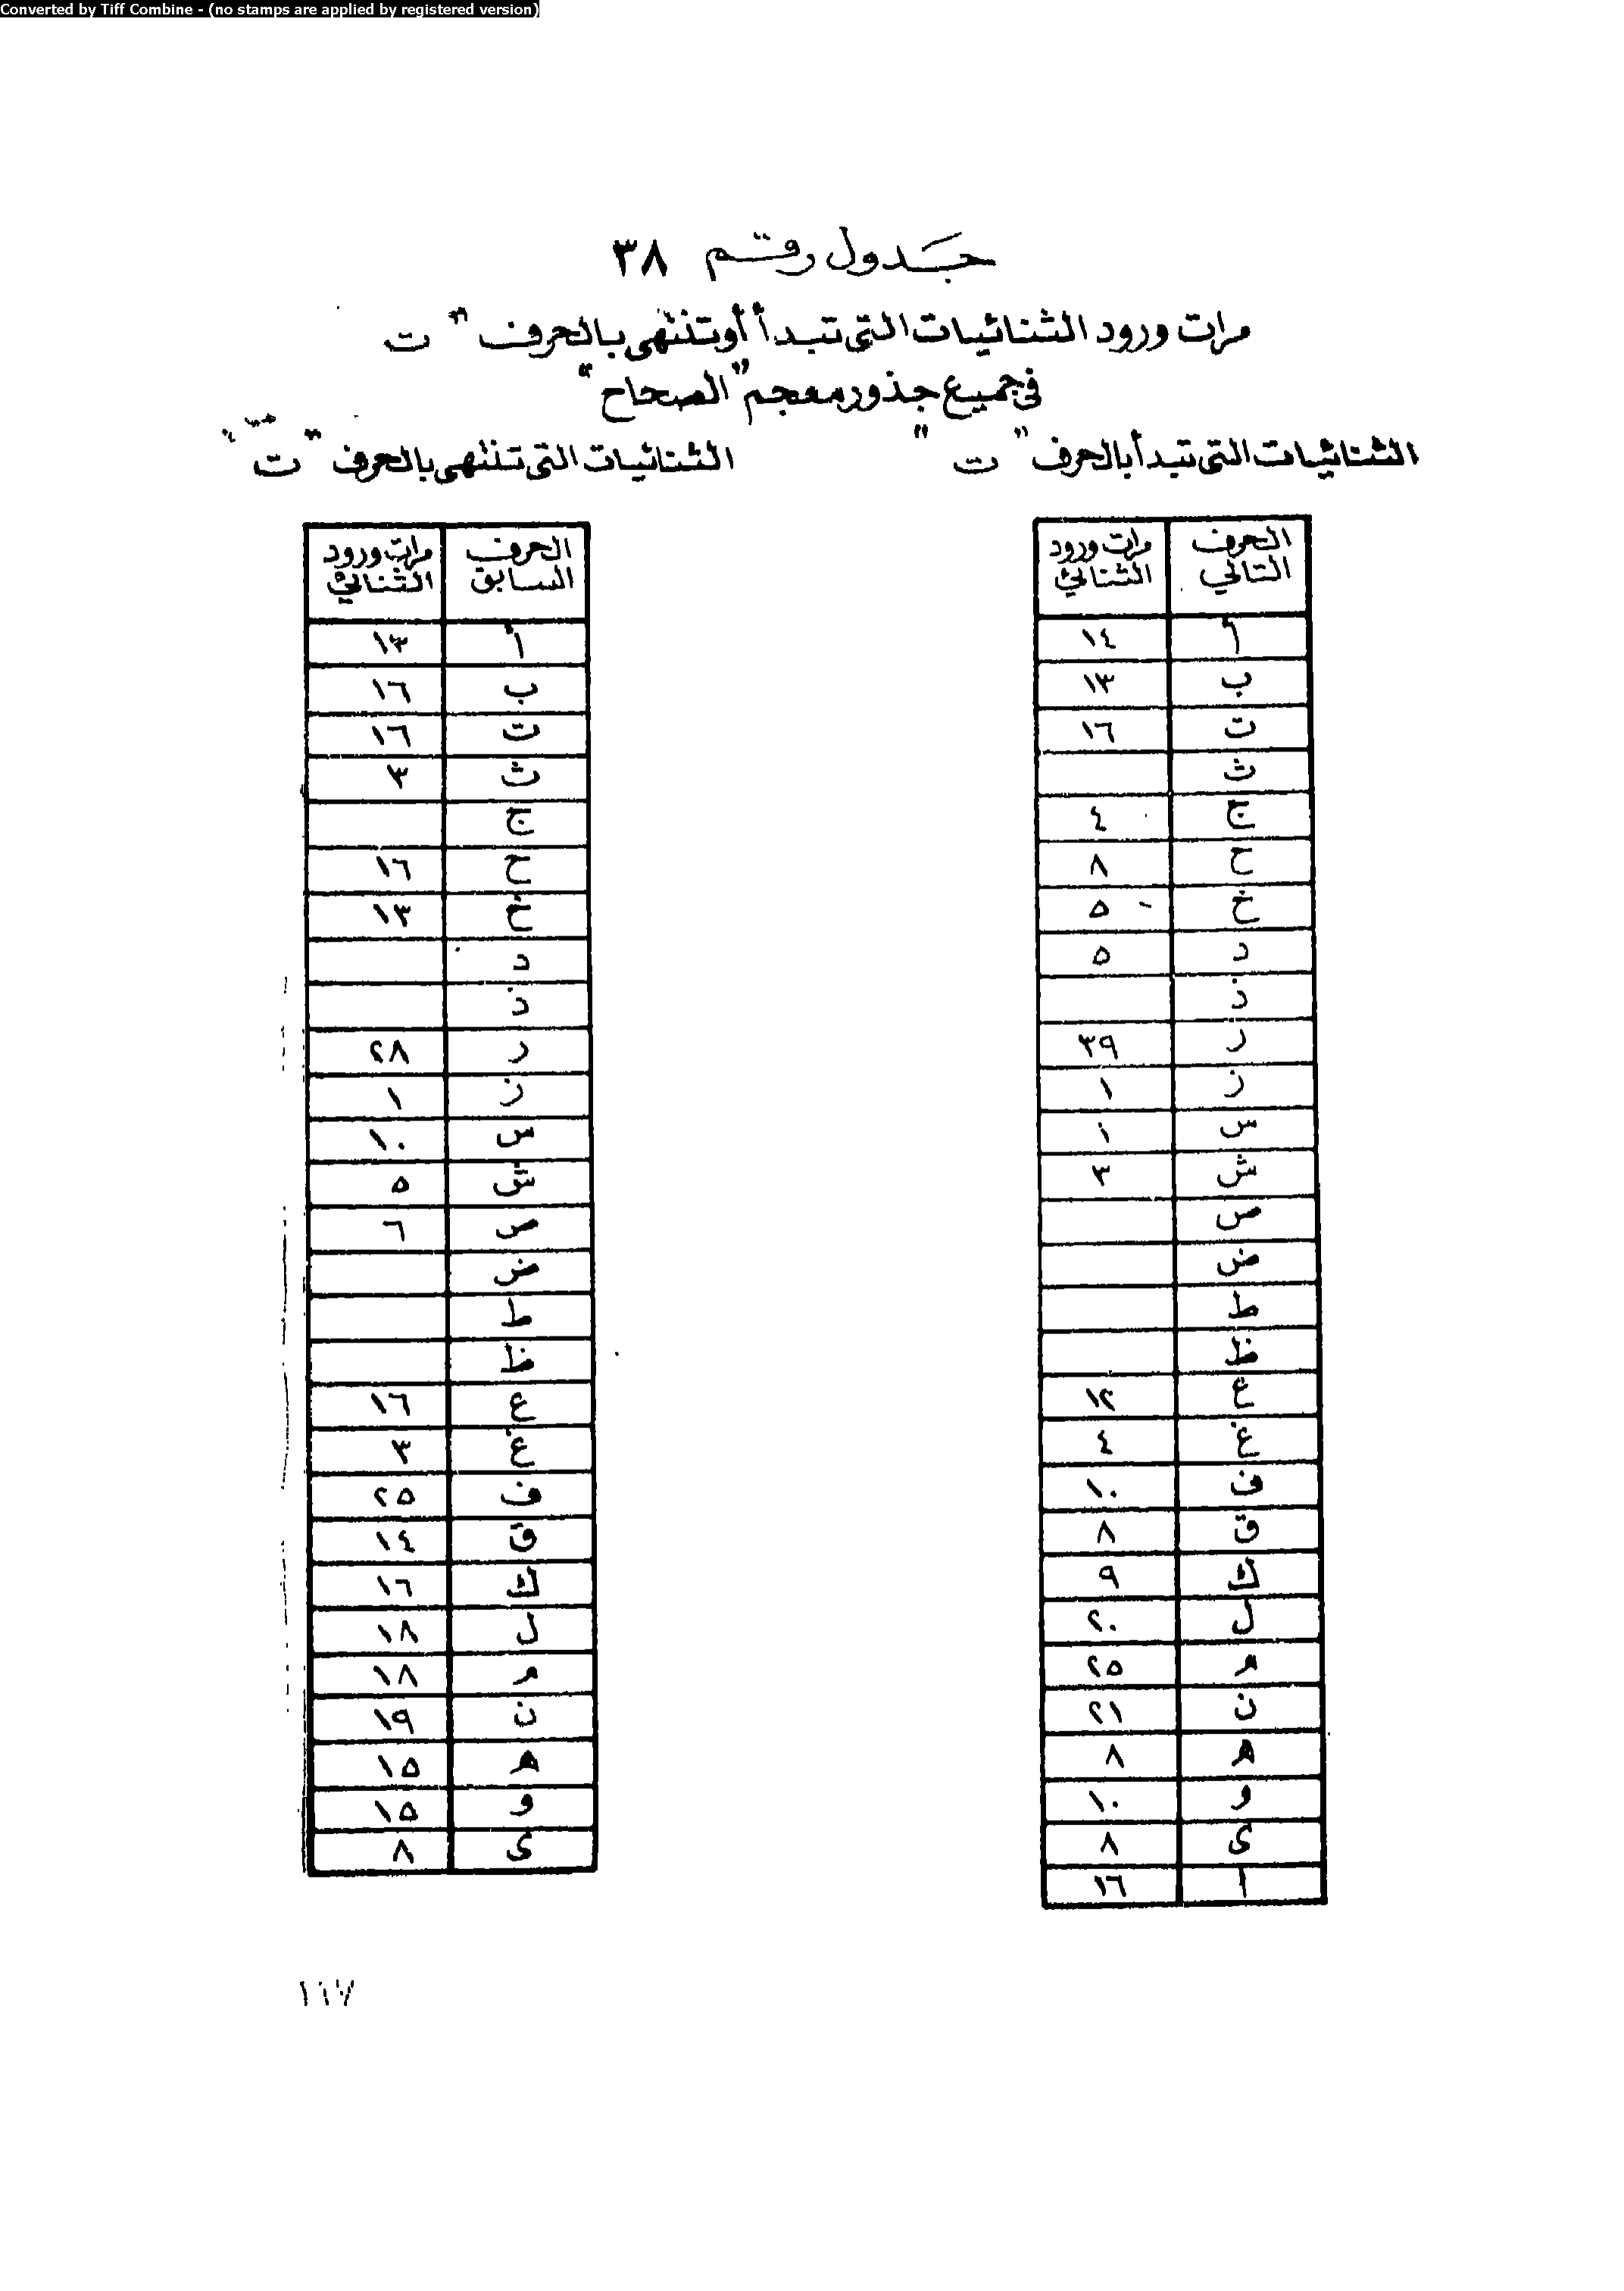 Converted by Tiff Combine - (no stamps are applied by registered version)
جدول رقم ٣٨
مرات ورود الثنائيات التى تبدأ أو تنتهى بالحرف "ت"
فى جميع جذور معجم "الصحاح"
الثنائيات التى تبدأ بالحرف "ت"
الحرف التالي مرات ورود الثنائي
أ ١٤
ب ١٣
ت ١٦
ث
ج ٤
ح ٨
خ ٥
د ٥
ذ
ر ٣٩
ز ١
س ١
ش ٣
ص
ض
ط
ظ
ع ١٢
غ ٤
ف ١٠
ق ٨
ك ٩
ل ٢٠
م ٢٥
ن ٢١
ه ٨
و ١٠
ى ٨
ا ١٦
الثنائيات التى تنتهى بالحرف "ت"
الحرف السابق مرات ورود الثنائي
أ ١٣
ب ١٦
ت ١٦
ث ٣
ج
ح ١٦
خ ١٣
د
ذ
ر ٢٨
ز ١
س ١٠
ش ٥
ص ٦
ض
ط
ظ
ع ١٦
غ ٣
ف ٢٥
ق ١٤
ك ١٦
ل ١٨
م ١٨
ن ١٩
ه ١٥
و ١٥
ى ٨
١٦٧